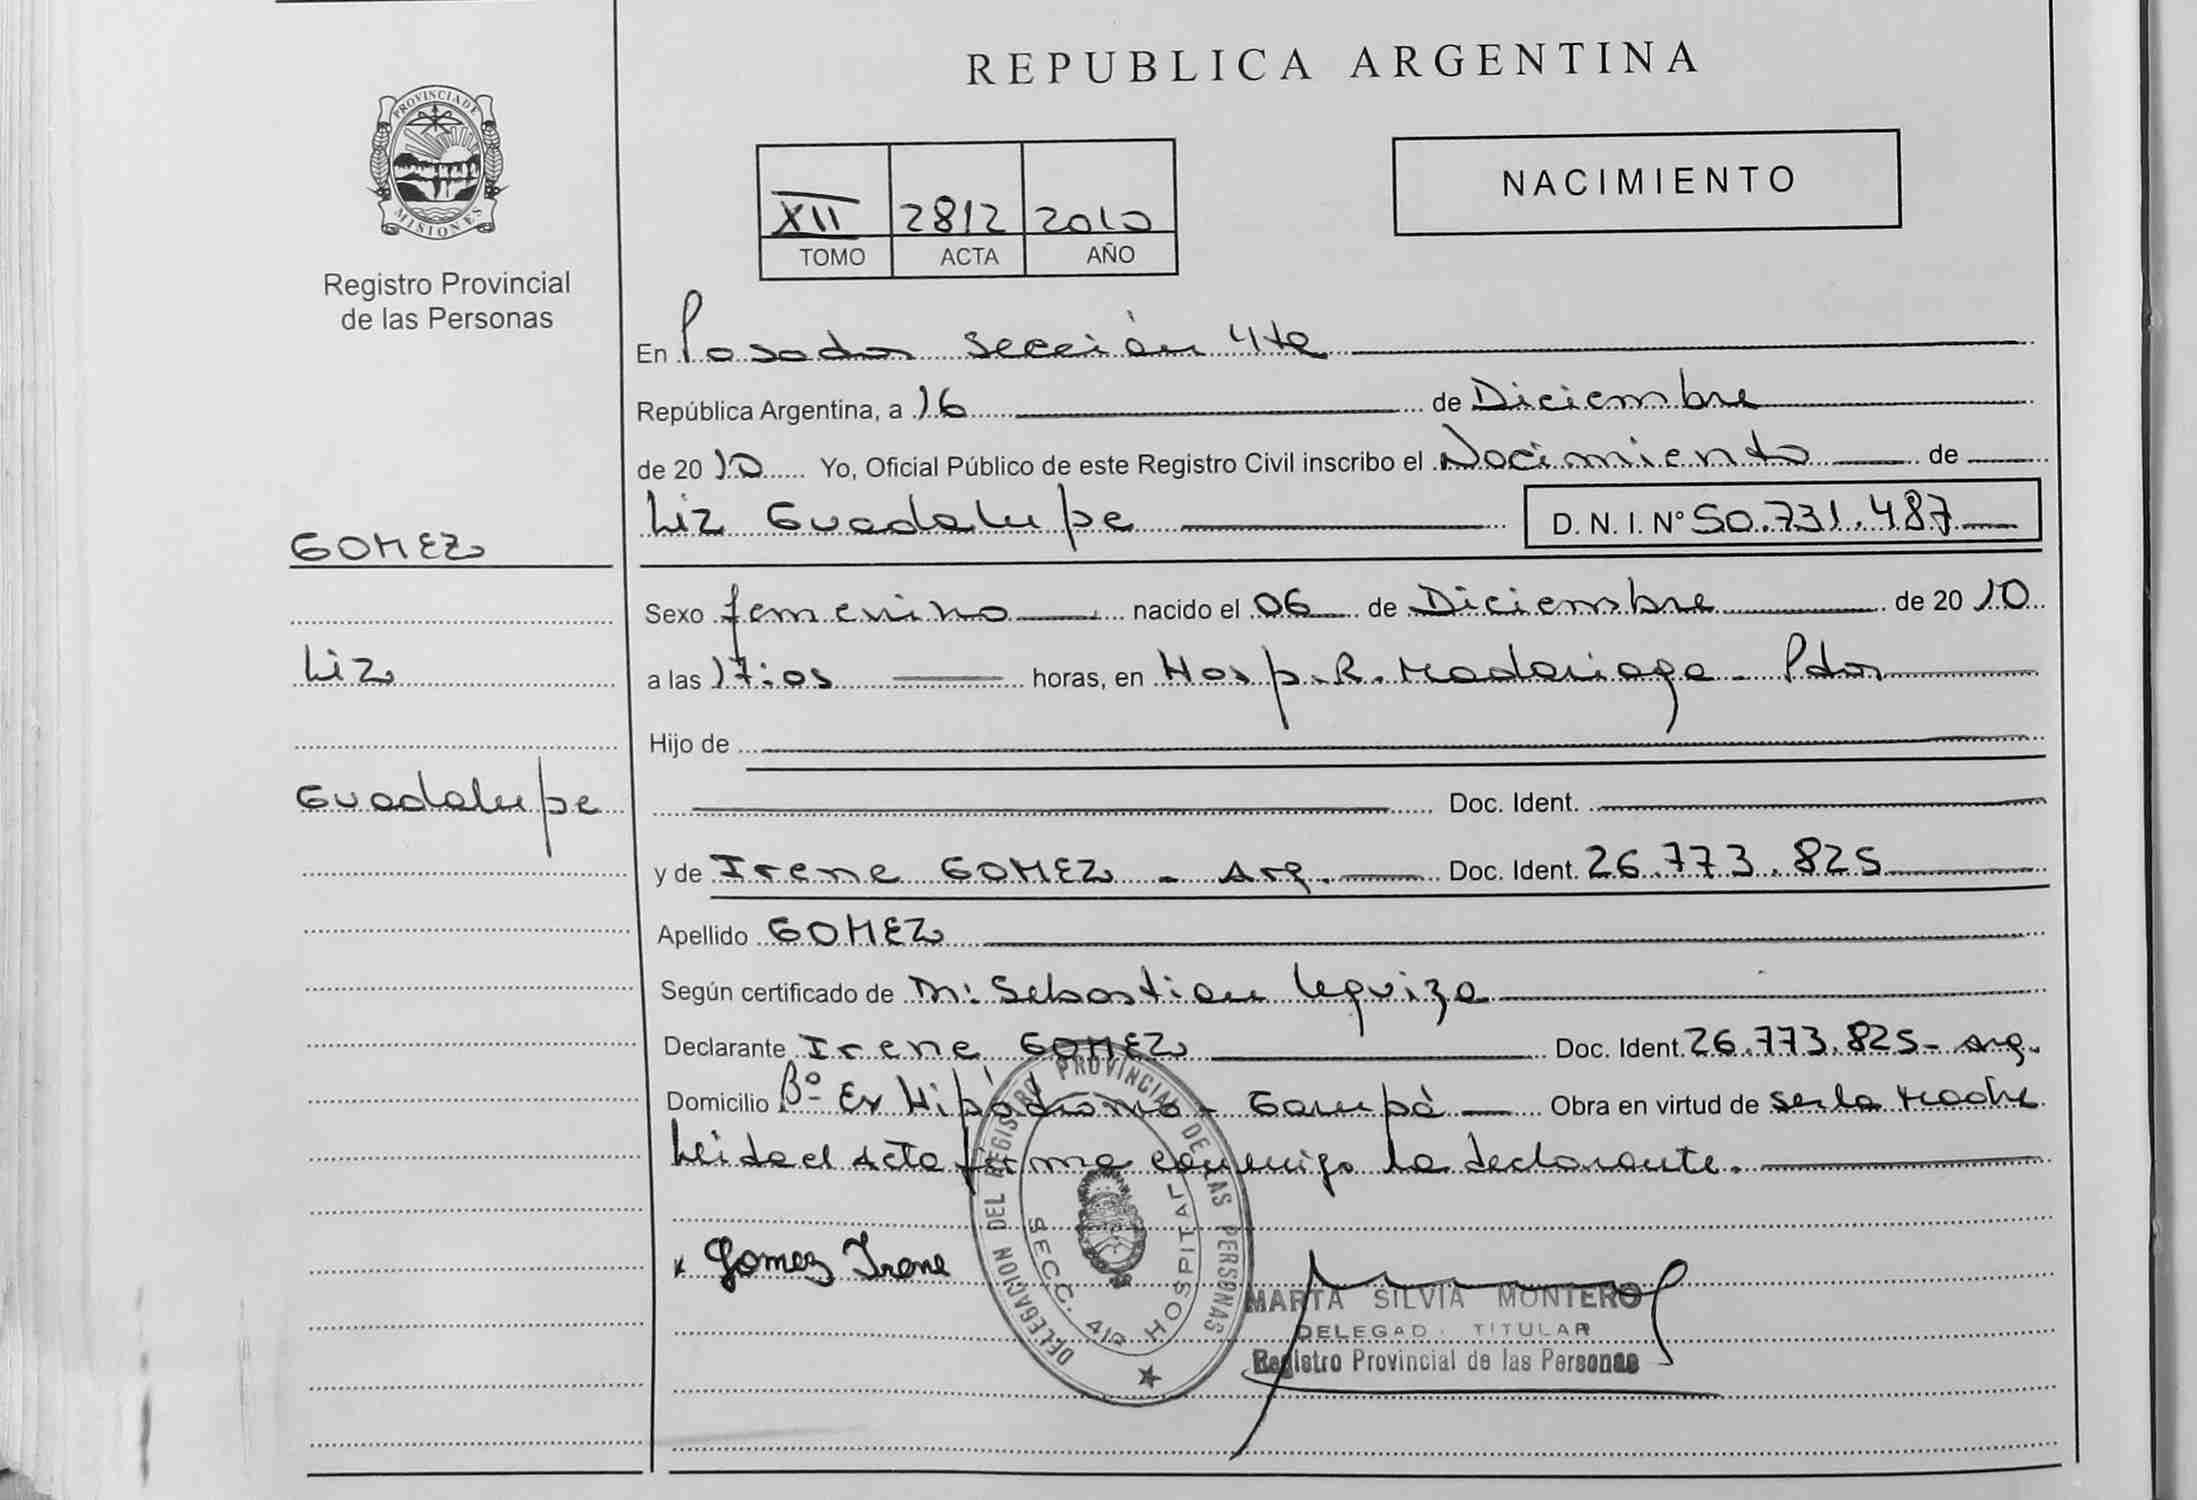 REPUBLICA ARGENTINA
PROVINCIA DE
MISIONES
Registro Provincial
de las Personas
XII 2812 2010
TOMO ACTA AÑO
NACIMIENTO
En Posadas Sección 4ta
República Argentina, a 16 de Diciembre
de 2010 Yo, Oficial Público de este Registro Civil inscribo el Nacimiento de
Liz Guadalupe D. N. I. Nº 50.731.487
GOMEZ
Liz
Guadalupe
Sexo femenino nacido el 06 de Diciembre de 2010
a las 17:05 horas, en Hosp. R. Madariaga - Pdas
Hijo de
Doc. Ident.
y de Irene GOMEZ - Arg. Doc. Ident. 26.773.825
Apellido GOMEZ
Según certificado de M: Sebastian Leguiza
Declarante Irene GOMEZ Doc. Ident. 26.773.825 - Arg.
Domicilio Bº Ex Hipódromo - Garupá Obra en virtud de ser la Madre
Leida el Acta firma conmigo la declarante.
Gomez Irene
DELEGACION DEL REGISTRO PROVINCIAL DE LAS PERSONAS
SECC. 4ta HOSPITAL
MARTA SILVIA MONTERO
DELEGAD. TITULAR
Registro Provincial de las Personas